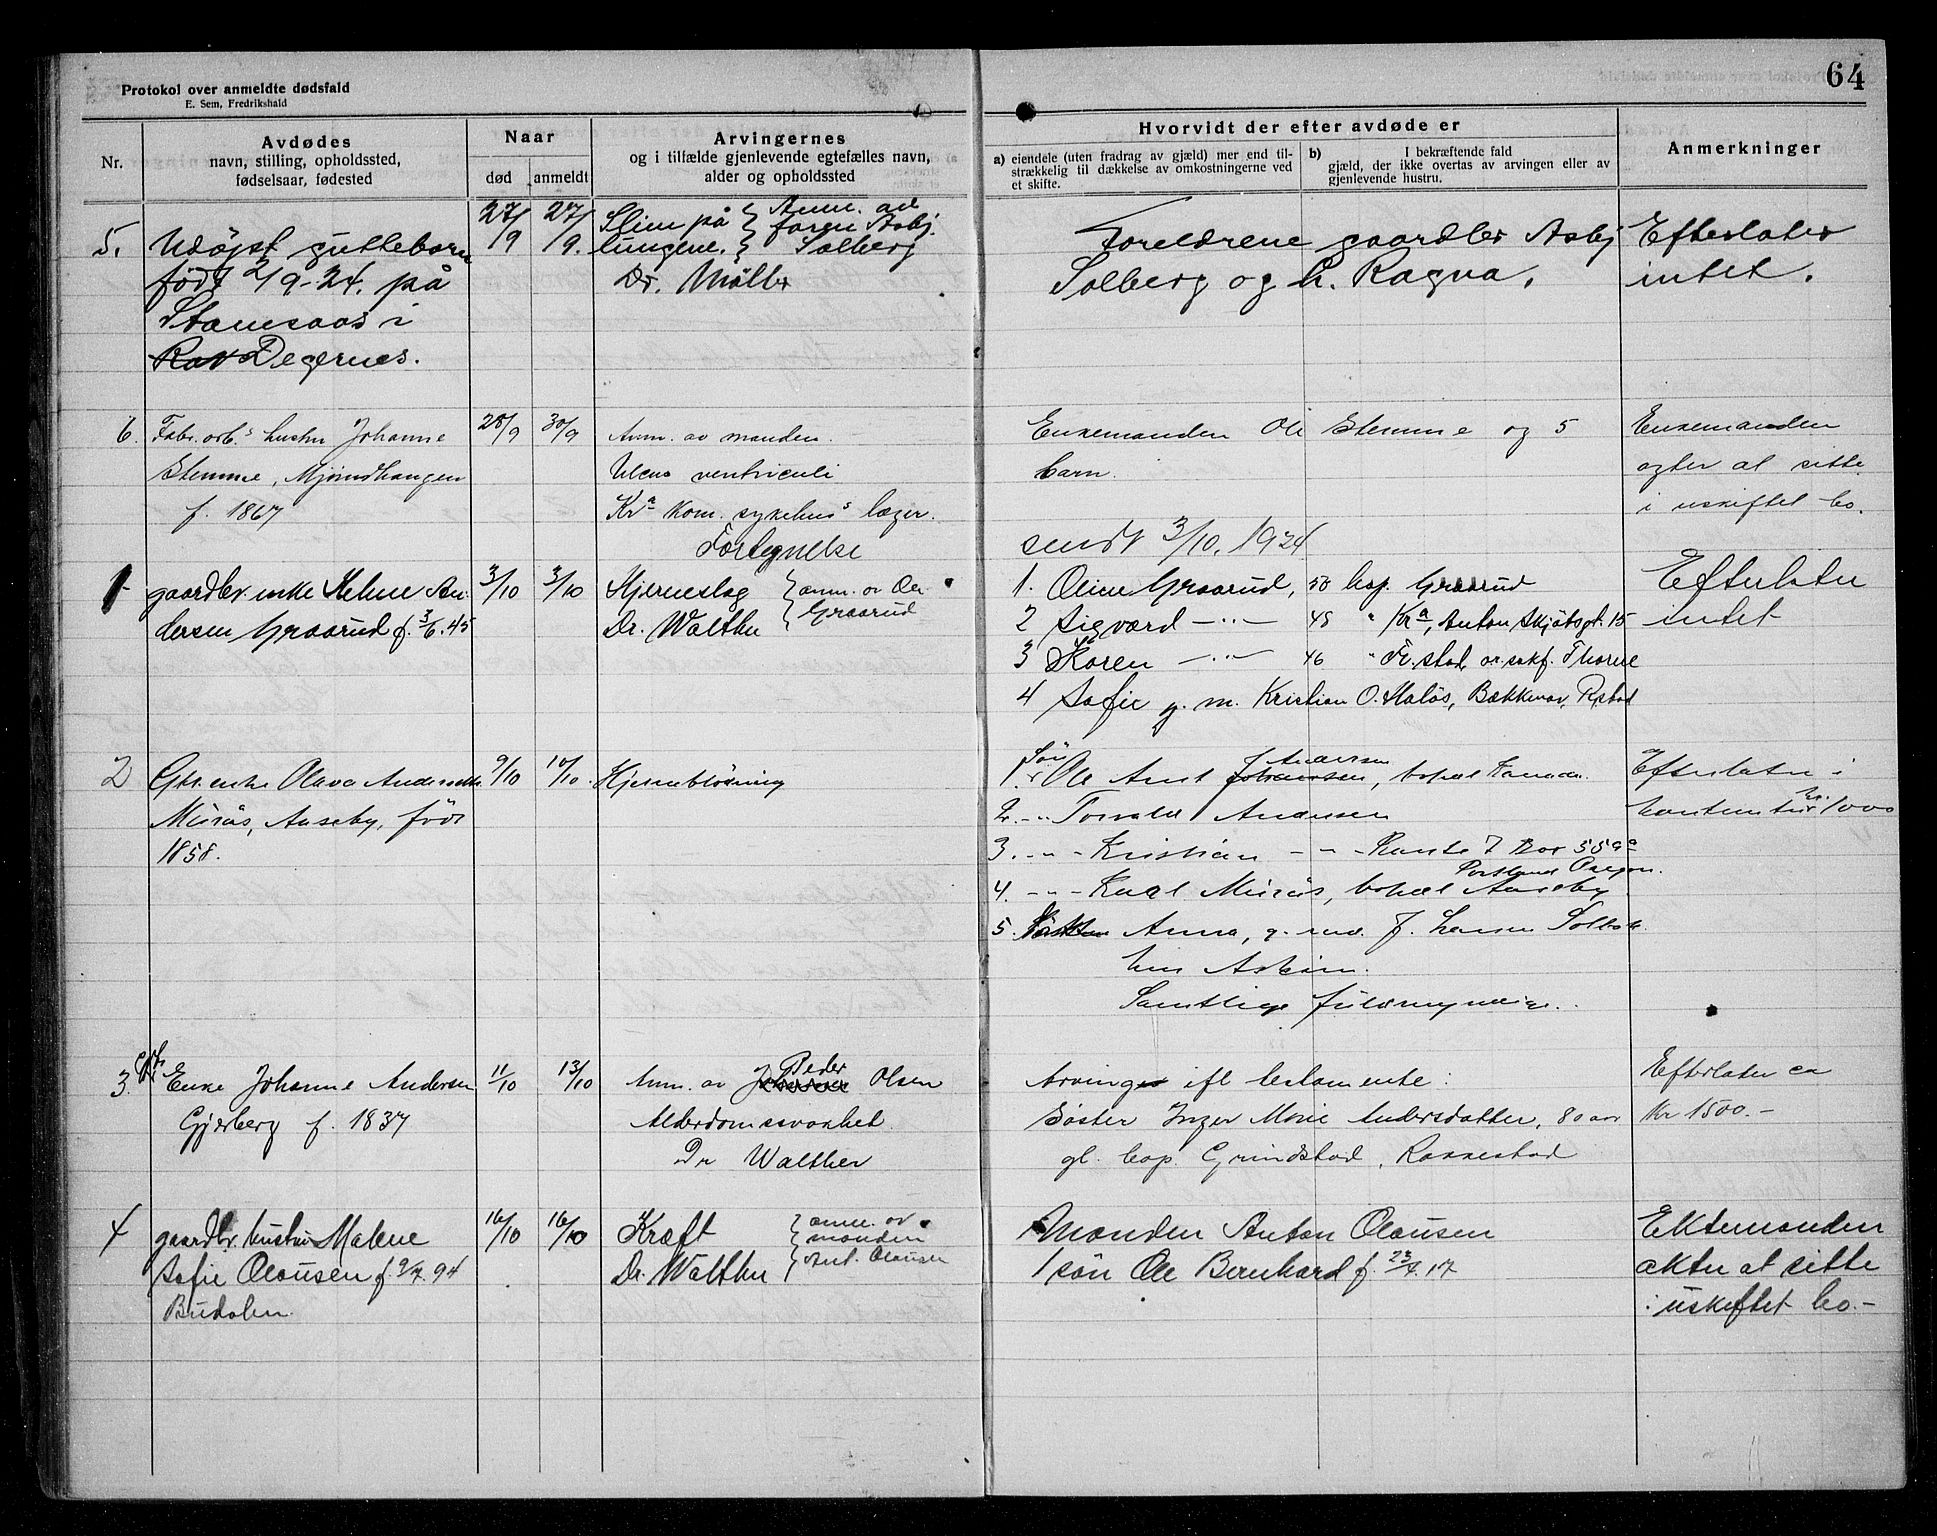 64
Protokol over anmeldte dødsfald
E. Sem, Fredrikshald
Nr.
Avdødes
navn, stilling, opholdssted,
fødselsaar, fødested
Naar
død
anmeldt
Arvingernes
og i tilfælde gjenlevende egtefælles navn,
alder og opholdssted
Hvorvidt der efter avdøde er
a) eiendele (uten fradrag av gjæld) mer end til-
strækkelig til dækkelse av omkostningerne ved
et skifte.
b) I bekræftende fald
gjæld, der ikke overtas av arvingen eller av
gjenlevende hustru.
Anmerkninger
5.
Udøpt guttebarn
født 2/9-24. på
i
Rav Degernes.
27/9
27/9.
Slim på
lungene.
Anm. av
faren Asbj.
Solberg
Dr. Møller
Foreldrene gaardbr Asbj
Solberg og h. Ragna.
Efterlater
intet.
6.
Fabr. arb.s hustru Johanne
Stemme, Mjørudhaugen
f. 1867
28/9
30/9
Anm. av manden.
Ulcus ventriculi
Kra kom. sykehus's læger.
Fortegnelse
Enkemanden Ole Stemme og 5
barn.
sendt 3/10. 1924
Enkemanden
agter at sitte
i uskiftet bo.
1
gaardbr. enke Helene An-
dersen Graarud f. 3/6.45
3/10
3/10
Hjerneslag
Dr. Walther
anm. av
Graarud
1. Oline Graarud, 50 bop. Graarud
2 Sigvard -"- 48 " Kra, Anton Skjøtsgt. 15
3 Karen -"- 46 " Fr.stad
4 Sofie g. m. Kristian O. Haløs, Rstad
Efterlater
intet
2
Gbr. enke Olava Andersdtr.
Misvås, Aaseby, født
1858.
9/10
10/10
Hjerneblødning
Søn
1. Ole Ant Johansen, Andersen bopæl
2. -"- Torvald Andersen
3. -"- Kristian -"- Route 7 Box 559a
Portland Oregon.
4. -"- Karl Misvås, bopæl Aaseby
5. Anna, g. m. J. Larsen
Askim.
Samtlige fuldmyndige.
Efterlater i
kontanter kr. 1000
3.
Gbr.
Enke Johanne Andersen
Gjerberg f. 1837
11/10
13/10
Anm. av Peder Olsen
Alderdomssvakhet
Dr Walther
Arvinger ifl testamente:
Søster Inger Marie Andersdatter, 80 aar
gl. bop. Grindstad, Rakkestad
Efterlater ca
Kr 1500.-
4
gaardbr. hustru Malene
Sofie Olausen f. 9/7. 94
Budalen
16/10
16/10
Kræft
Dr. Walther
anm. av
manden
Ant. Olausen
Manden Anton Olausen
1 søn Ole Bernhard f. 23/7. 17
Ektemanden
akter at sitte
i uskiftet bo.-